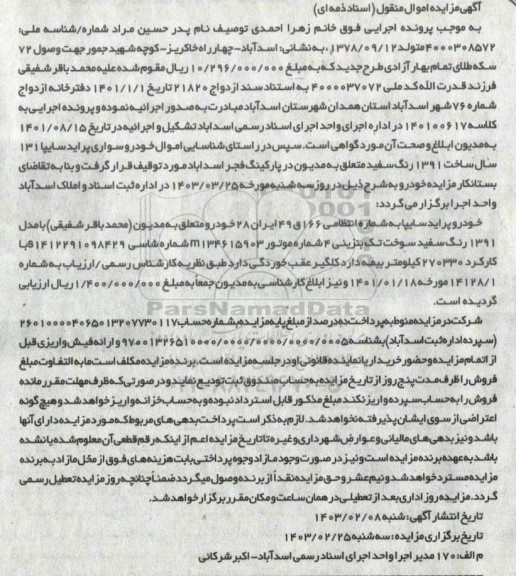 آگهی مزایده اموال منقول (اسناد ذمه ای)
به موجب پرونده اجرایی فوق خانم زهرا احمدی توصیف نام پدر حسین مراد شماره/شناسه ملی:
۴۰۰۰۳۰۸۵۷۲ متولد ۱۳۷۸/۰۹/۱۲، به نشانی: اسدآباد-چهارراه خاکریز-کوچه شهید جمور جهت وصول ۷۲
سکه طلای تمام بهار آزادی طرح جدید که به مبلغ ۱۰/۲۹۶/۰۰۰/۰۰۰ ریال مقوم شده علیه محمد باقر شفیقی
فرزند قدرت الله کد ملی ۴۰۰۰۰۳۷۰۷۲ به استناد سند ازدواج ۲۱۸۲۰ تاریخ ۱۴۰۱/۱/۱ دفترخانه ازدواج
شماره ۷۶ شهر اسدآباد استان همدان شهرستان اسدآباد مبادرت به صدور اجرائیه نموده و پرونده اجرایی به
کلاسه ۱۴۰۱۰۰۶۱۷ در اداره اجرای واحد اجرای اسناد رسمی اسداباد تشکیل و اجرائیه در تاریخ ۱۴۰۱/۰۸/۱۵
به مدیون ابلاغ و صحت آن مورد گواهی است. سپس در راستای شناسایی اموال خودرو سواری پراید سایپا ۱۳۱
سال ساخت ۱۳۹۱ رنگ سفید متعلق به مدیون در پارکینگ فجر اسداباد مورد توقیف قرار گرفت و بنا به تقاضای
بستانکار مزایده خودرو به شرح ذیل در روز سه شنبه مورخه ۱۴۰۳/۰۳/۲۵ در اداره ثبت اسناد و املاک اسدآباد
واحد اجرا برگزار می گردد:
خودرو پراید سایپا به شماره انتظامی ۱۶۶ق۴۹ ایران ۲۸ خودرو متعلق به مدیون (محمد باقر شفیقی) با مدل
۱۳۹۱ رنگ سفید سوخت تک بنزینی ۴ شماره موتور m۱۳۴۶۱۵۹۰۳ شماره شاسی s۱۴۱۲۲۹۱۰۹۸۴۲۹ با
کارکرد ۲۷۰۳۳۰ کیلومتر بیمه دارد گلگیر عقب خوردگی دارد طبق نظریه کارشناس رسمی/ارزیاب به شماره
۱۴۱۲۸/۱ مورخه ۱۴۰۱/۰۱/۱۸ و نیز ابلاغ کارشناسی به مدیون جمعا به مبلغ ۱/۴۰۰/۰۰۰/۰۰۰ ریال ارزیابی
گردیده است.
ParsNamadData
شرکت در مزایده منوط به پرداخت ده درصد از مبلغ پایه مزایده به شماره حساب
(سپرده اداره ثبت اسدآباد) بشناسه و ارائه فیش واریزی قبل
از اتمام مزایده و حضور خریدار یا نماینده قانونی او در جلسه مزایده است. برنده مزایده مکلف است مابه التفاوت مبلغ
فروش را ظرف مدت پنج روز از تاریخ مزایده به حساب صندوق ثبت تودیع نماید و در صورتی که ظرف مهلت مقرر مانده
فروش را به حساب سپرده واریز نکند مبلغ مذکور قابل استرداد نبوده و به حساب خزانه واریز خواهد شد و هیچ گونه
اعتراضی از سوی ایشان پذیرفته نخواهد شد. لازم به ذکر است پرداخت بدهی های مربوط که مورد مزایده دارای آنها
باشد و نیز بدهی های مالیاتی و عوارض شهرداری و غیره تا تاریخ مزایده اعم از اینکه رقم قطعی آن معلوم شده یا نشده
باشد به عهده برنده مزایده است و نیز در صورت وجود مازاد وجوه پرداختی بابت هزینه های فوق از محل مازاد به برنده
مزایده مسترد خواهد شد و نیم عشر و حق مزایده نقداً از برنده وصول میگردد ضمناً چنانچه روز مزایده تعطیل رسمی
گردد، مزایده روز اداری بعد از تعطیلی در همان ساعت و مکان مقرر برگزار خواهد شد.
تاریخ انتشار آگهی: شنبه ۱۴۰۳/۰۲/۰۸
تاریخ برگزاری مزایده: سه شنبه ۱۴۰۳/۰۲/۲۵
م الف: ۱۷۰ مدیر اجرا واحد اجرای اسناد رسمی اسدآباد- اکبر شرکائی